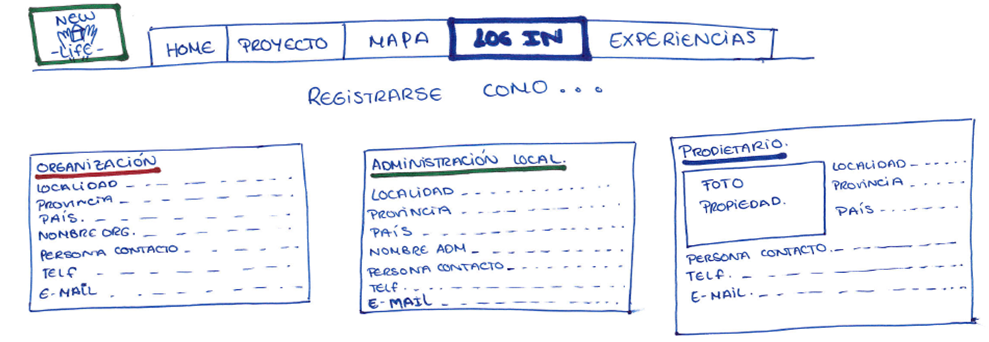 NEW
-Life-
HOME PROYECTO MAPA LOG IN EXPERIENCIAS
REGISTRARSE COMO...
ORGANIZACIÓN
LOCALIDAD
PROVINCIA
PAÍS.
NOMBRE ORG.
PERSONA CONTACTO
TELF
E-MAIL
ADMINISTRACIÓN LOCAL.
LOCALIDAD
PROVINCIA
PAÍS
NOMBRE ADM
PERSONA CONTACTO
TELF.
E-MAIL
PROPIETARIO.
FOTO
PROPIEDAD.
LOCALIDAD
PROVINCIA
PAÍS
PERSONA CONTACTO.
TELF.
E-MAIL.